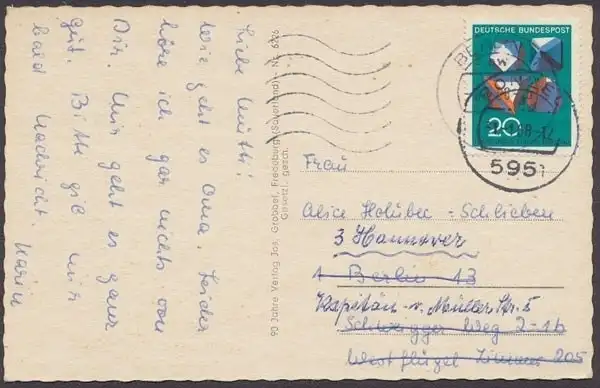 Liebe Mutti!
wie geht es Oma. Leider
höre ich gar nichts von
Dir. Mir geht es ganz
gut. Bitte gib mir
bald Nachricht. Karin
90 Jahre Verlag Jos. Grobbel, Fredeburg (Sauerland) - Nr. 6326
Gesetzl. gesch.
DEUTSCHE BUNDESPOST
20
595
Frau
Alice Holubec - Schlieben
3 Hannover
1 Berlin 13
Kapitän-v. Müller Str. 5
Schwegger Weg 2-16
Westflügel Zimmer 205